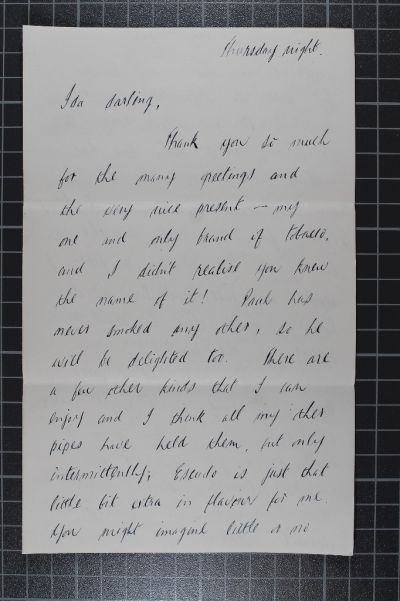 Thursday night.
Ida darling,
Thank you so much
for the many greetings and
the very nice present — my
one and only brand of tobacco,
and I didn't realise you knew
the name of it! Paul has
never smoked any other, so he
will be delighted too. There are
a few other kinds that I can
enjoy and I think all my other
pipes have held them, but only
intermittently; Escudo is just that
little bit extra in flavour for me.
You might imagine little or no